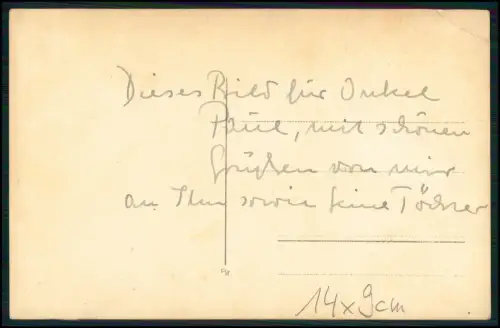 Dieses Bild für Onkel
Paul, mit schönen
Grüßen von mir
an Ihn sowie seine Töchter
14x9cm